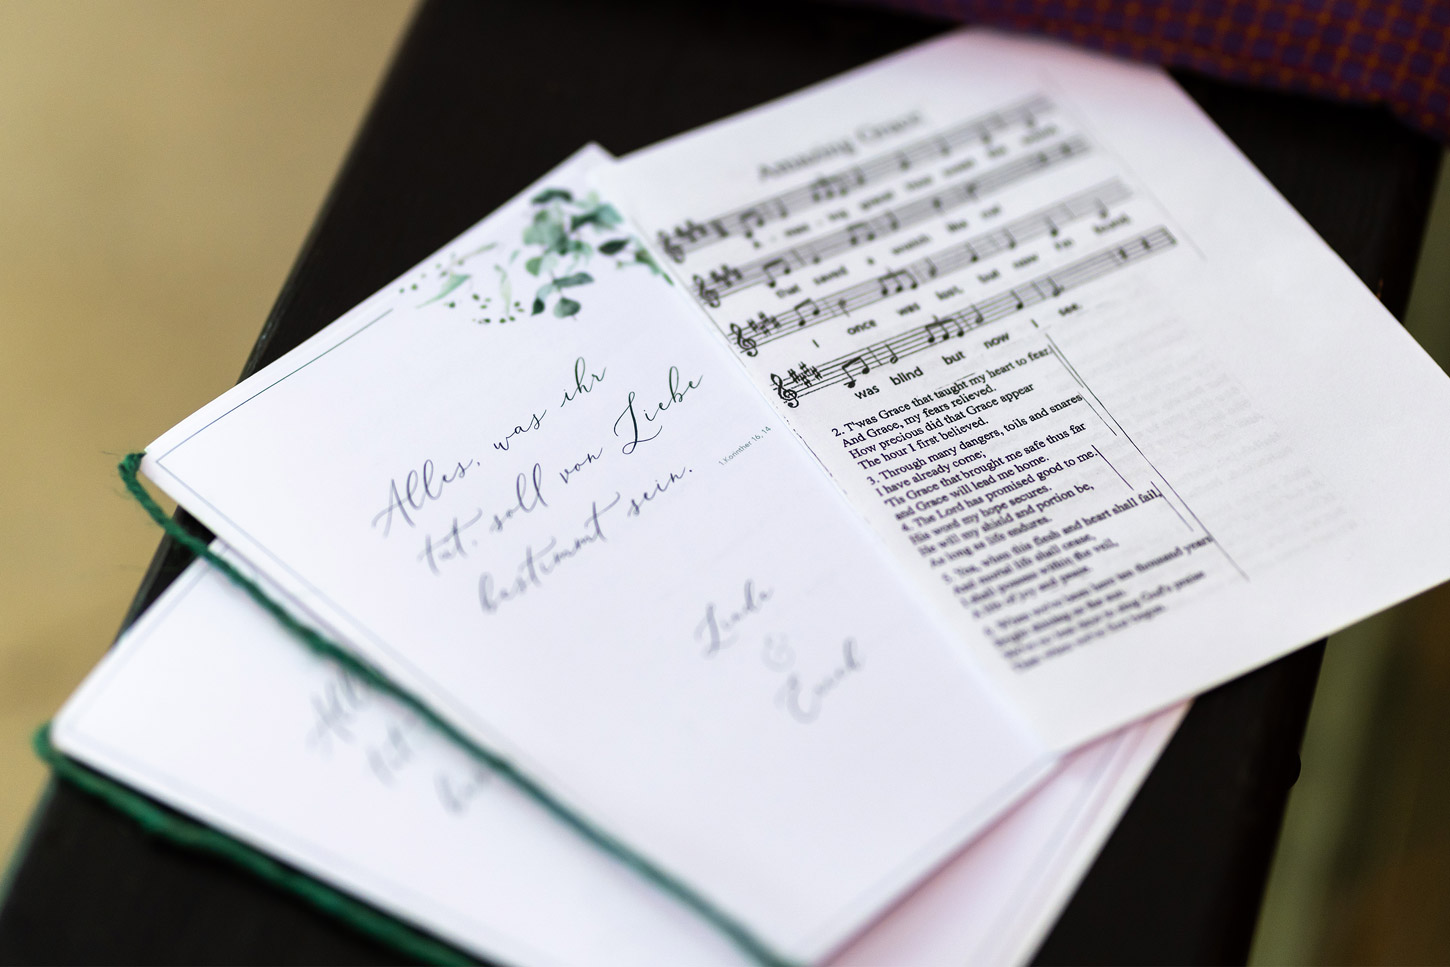 Alles, was ihr
tut, soll von Liebe
bestimmt sein.
1.Korinther 16, 14
Linda
&
Amazing Grace
A - maz - ing grace how sweet the sound
That saved a wretch like me!
I once was lost, but now I'm found
was blind but now I see
2. T'was Grace that taught my heart to fear.
And Grace, my fears relieved.
How precious did that Grace appear
The hour I first believed.
3. Through many dangers, toils and snares
I have already come;
'Tis Grace that brought me safe thus far
and Grace will lead me home.
4. The Lord has promised good to me.
His word my hope secures.
He will my shield and portion be,
As long as life endures.
5. Yea, when this flesh and heart shall fail,
And mortal life shall cease,
I shall possess within the veil,
A life of joy and peace.
6. When we've been here ten thousand years
Bright shining as the sun.
We've no less days to sing God's praise
Than when we've first begun.
Alles
tut